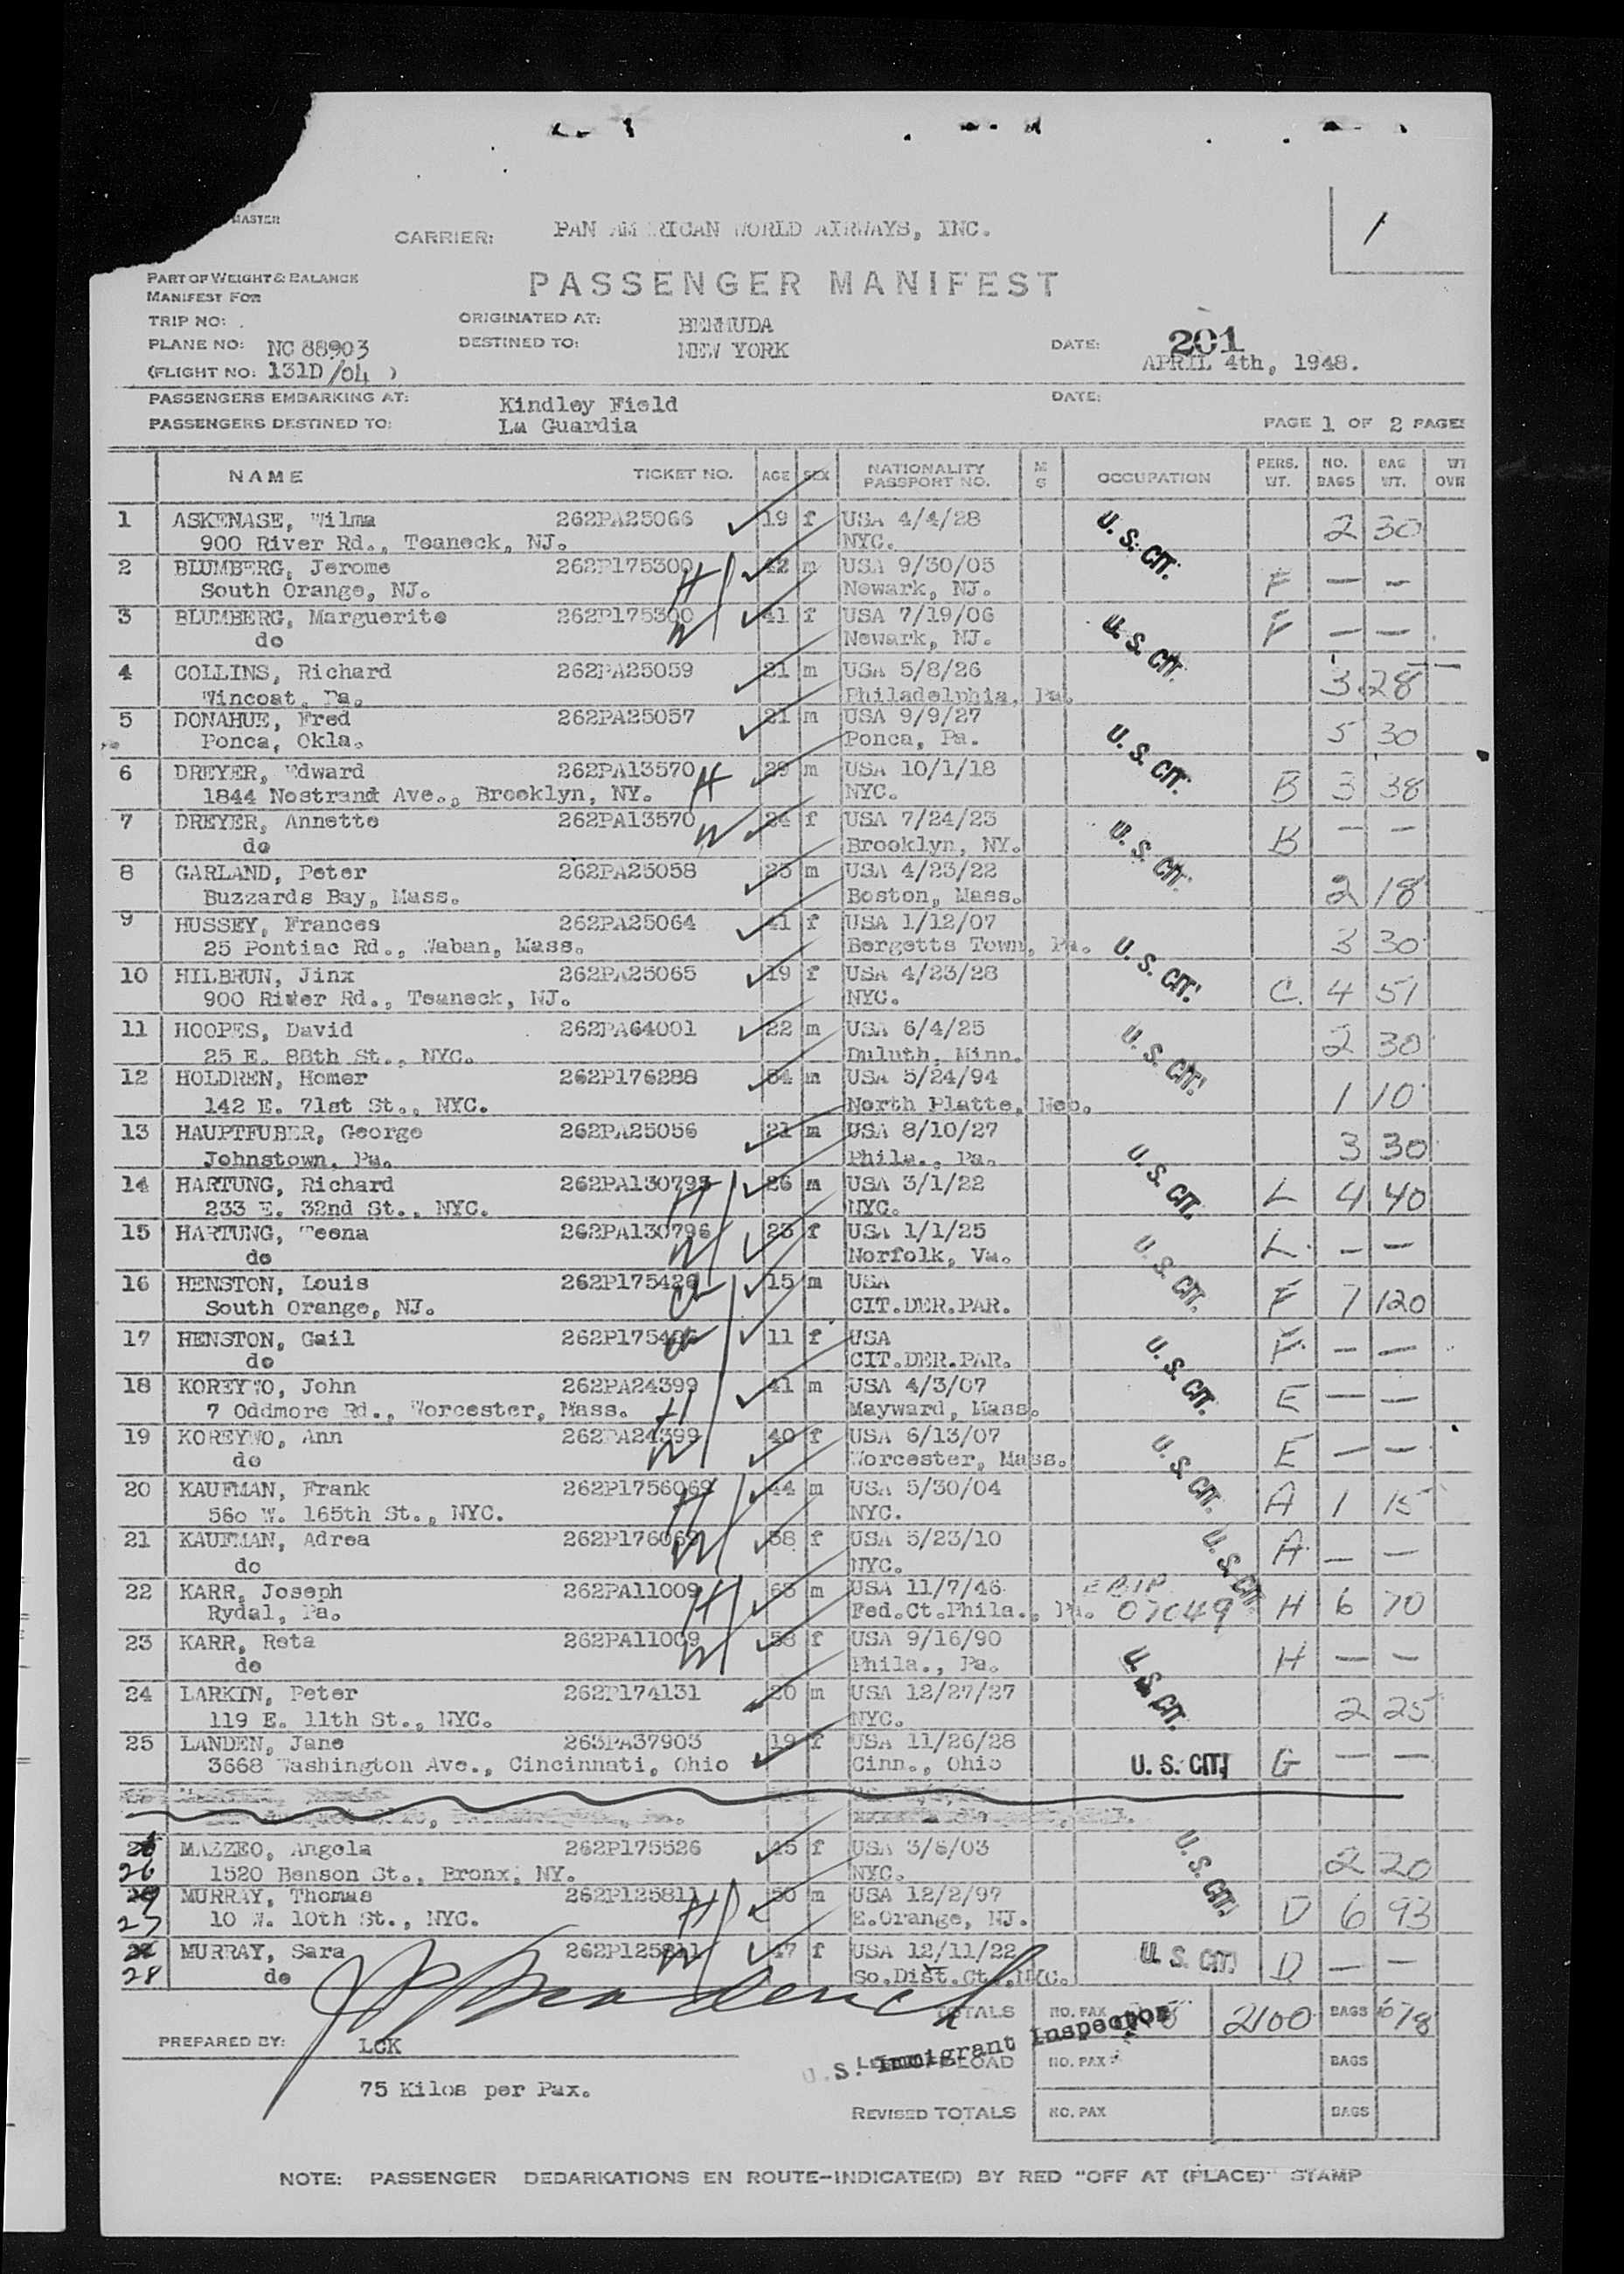 MASTER
CARRIER: PAN AMERICAN WORLD AIRWAYS, INC.
1
PART OF WEIGHT & BALANCE
MANIFEST FOR
PASSENGER MANIFEST
TRIP NO:
ORIGINATED AT: BERMUDA
PLANE NO: NC 88903
DESTINED TO: NEW YORK
DATE: 201
APRIL 4th, 1948.
(FLIGHT NO: 131D/04 )
PASSENGERS EMBARKING AT: Kindley Field
DATE:
PASSENGERS DESTINED TO: La Guardia
PAGE 1 OF 2 PAGES
NAME TICKET NO. AGE SEX NATIONALITY PASSPORT NO. M S OCCUPATION PERS. WT. NO. BAGS BAG WT. WT OVR
1 ASKENASE, Wilma 262PA25066 19 f USA 4/4/28 U. S. CIT. 2 30
900 River Rd., Teaneck, NJ. NYC.
2 BLUMBERG, Jerome 262P175300 H 42 m USA 9/30/05 F — —
South Orange, NJ. Newark, NJ.
3 BLUMBERG, Marguerite 262P175300 W 41 f USA 7/19/06 U. S. CIT. F — —
do Newark, NJ.
4 COLLINS, Richard 262PA25059 21 m USA 5/8/26 3 28
Wincoat, Pa. Philadelphia, Pa.
5 DONAHUE, Fred 262PA25057 21 m USA 9/9/27 U. S. CIT. 5 30
Ponca, Okla. Ponca, Pa.
6 DREYER, Edward 262PA13570 H 29 m USA 10/1/18 B 3 38
1844 Nostrand Ave., Brooklyn, NY. NYC.
7 DREYER, Annette 262PA13570 W 24 f USA 7/24/23 U. S. CIT. B — —
do Brooklyn, NY.
8 GARLAND, Peter 262PA25058 25 m USA 4/23/22 2 18
Buzzards Bay, Mass. Boston, Mass.
9 HUSSEY, Frances 262PA25064 41 f USA 1/12/07 U. S. CIT. 3 30
25 Pontiac Rd., Waban, Mass. Bergetts Town, Pa.
10 HILBRUN, Jinx 262PA25065 19 f USA 4/23/28 C. 4 51
900 River Rd., Teaneck, NJ. NYC.
11 HOOPES, David 262PA64001 22 m USA 6/4/25 U. S. CIT. 2 30
25 E. 88th St., NYC. Duluth, Minn.
12 HOLDREN, Homer 262P176288 54 m USA 5/24/94 1 10
142 E. 71st St., NYC. North Platte, Neb.
13 HAUPTFUBER, George 262PA25056 21 m USA 8/10/27 U. S. CIT. 3 30
Johnstown, Pa. Phila., Pa.
14 HARTUNG, Richard 262PA130795 H 26 m USA 3/1/22 L 4 40
233 E. 32nd St., NYC. NYC.
15 HARTUNG, Teena 262PA130796 W 23 f USA 1/1/25 U. S. CIT. L. — —
do Norfolk, Va.
16 HENSTON, Louis 262P175426 15 m USA F 7 120
South Orange, NJ. CIT.DER.PAR.
17 HENSTON, Gail 262P175426 11 f USA U. S. CIT. F. — —
do CIT.DER.PAR.
18 KOREYWO, John 262PA24399 H 41 m USA 4/3/07 E — —
7 Oddmore Rd., Worcester, Mass. Mayward, Mass.
19 KOREYWO, Ann 262PA24399 W 40 f USA 6/13/07 U. S. CIT. E — —
do Worcester, Mass.
20 KAUFMAN, Frank 262P1756069 H 44 m USA 5/30/04 A 1 15
560 W. 165th St., NYC. NYC.
21 KAUFMAN, Adrea 262P176069 W 38 f USA 5/23/10 U. S. CIT. A. — —
do NYC.
22 KARR, Joseph 262PA11009 H 65 m USA 11/7/46 07049 H 6 70
Rydal, Pa. Fed.Ct.Phila., Pa.
23 KARR, Reta 262PA11009 W 58 f USA 9/16/90 H — —
do Phila., Pa.
24 LARKIN, Peter 262P174131 20 m USA 12/27/27 U. S. CIT. 2 25
119 E. 11th St., NYC. NYC.
25 LANDEN, Jane 263PA37903 19 f USA 11/26/28 U. S. CIT. G — —
3668 Washington Ave., Cincinnati, Ohio Cinn., Ohio
26 MAZZEO, Angela 262P175526 45 f USA 3/6/03 U. S. CIT. 2 20
1520 Benson St., Bronx, NY. NYC.
27 MURRAY, Thomas 262P125811 H 50 m USA 12/2/97 D 6 93
10 W. 10th St., NYC. E.Orange, NJ.
28 MURRAY, Sara 262P125811 W 47 f USA 12/11/22 U. S. CIT. D — —
do So.Dist.Ct.,NYC.
TOTALS NO. PAX 28 2100 BAGS 678
PREPARED BY: LCK
U.S. Immigrant Inspector
LOAD NO. PAX BAGS
75 Kilos per Pax.
REVISED TOTALS NO. PAX BAGS
NOTE: PASSENGER DEBARKATIONS EN ROUTE-INDICATE(D) BY RED "OFF AT (PLACE)" STAMP